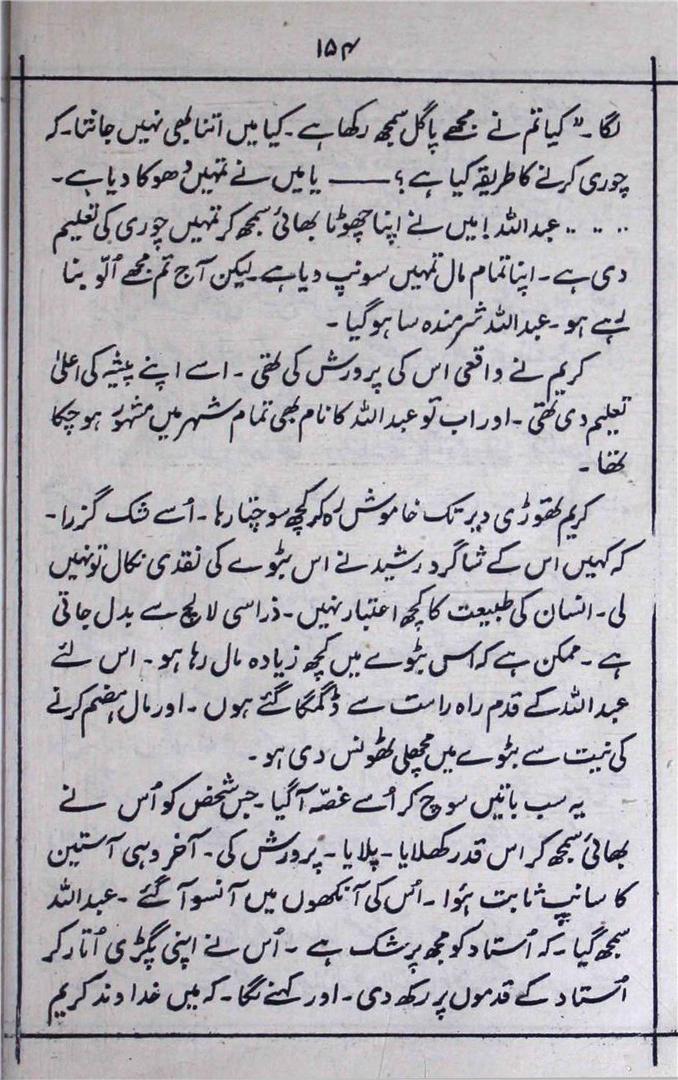 ۱۵۴
لگا۔" کیا تم نے مجھے پاگل سمجھ رکھا ہے۔ کیا میں اتنا بھی نہیں جانتا۔ کہ
چوری کرنے کا طریقہ کیا ہے؟ —— یا میں نے تمہیں دھوکا دیا ہے۔
.. .. .. عبداللہ! میں نے اپنا چھوٹا بھائی سمجھ کر تمہیں چوری کی تعلیم
دی ہے۔ اپنا تمام مال تمہیں سونپ دیا ہے۔ لیکن آج تم مجھے اُلّو بنا
رہے ہو۔ عبداللہ شرمندہ سا ہو گیا۔
کریم نے واقعی اس کی پرورش کی تھی۔ اسے اپنے پیشہ کی اعلیٰ
تعلیم دی تھی۔ اور اب تو عبداللہ کا نام بھی تمام شہر میں مشہور ہو چکا
تھا۔
کریم تھوڑی دیر تک خاموش رہ کر کچھ سوچتا رہا۔ اُسے شک گزرا۔
کہ کہیں اس کے شاگرد رشید نے اس بٹوے کی نقدی نکال تو نہیں
لی۔ انسان کی طبیعت کا کچھ اعتبار نہیں۔ ذرا سی لالچ سے بدل جاتی
ہے۔ ممکن ہے کہ اس بٹوے میں کچھ زیادہ مال رہا ہو۔ اس لئے
عبداللہ کے قدم راہ راست سے ڈگمگا گئے ہوں۔ اور مال ہضم کرنے
کی نیت سے بٹوے میں مچھلی ٹھونس دی ہو۔
یہ سب باتیں سوچ کر اُسے غصّہ آگیا۔ جس شخص کو اُس نے
بھائی سمجھ کر اس قدر کھلایا۔ پلایا۔ پرورش کی۔ آخر وہی آستین
کا سانپ ثابت ہُوا۔ اُس کی آنکھوں میں آنسو آ گئے۔ عبداللہ
سمجھ گیا۔ کہ اُستاد کو مجھ پر شک ہے۔ اُس نے اپنی پگڑی اُتار کر
اُستاد کے قدموں پر رکھ دی۔ اور کہنے لگا۔ کہ میں خداوند کریم